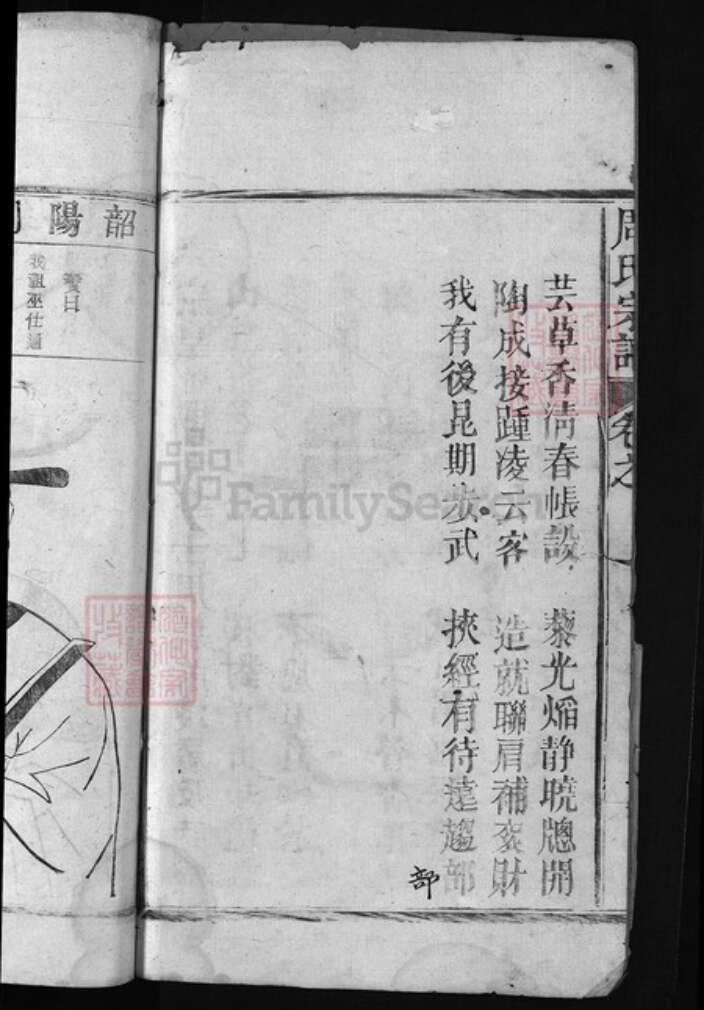 周氏宗譜 卷之
芸草香清春帳設 藜光焰静曉牕開
陶成接踵凌云客 造就聯肩補袞財
我有後昆期步武 挾經有待遠趨部
部
韶陽
贊曰
我祖巫仕通
FamilySearch